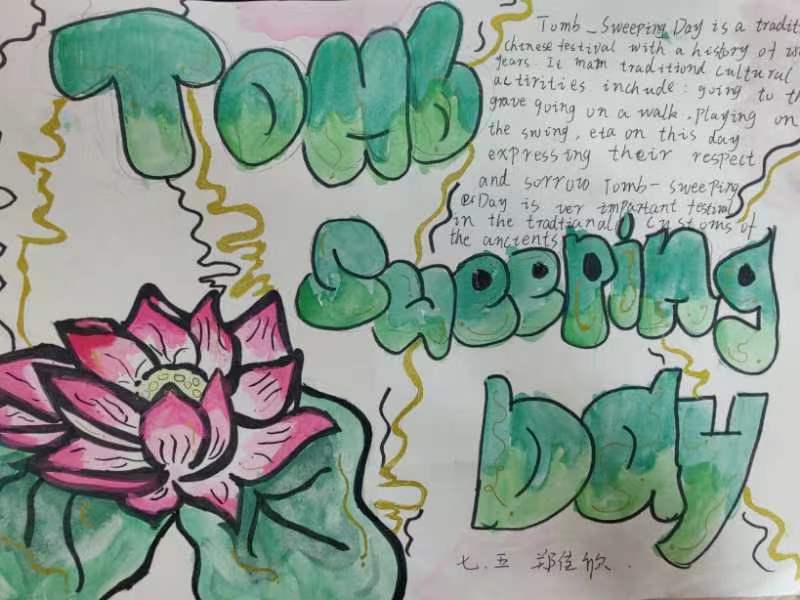 Tomb
Tomb_Sweeping Day is a traditi
chinese festival with a history of
years. It main traditiond cultural
activities include: going to th
grave going on a walk, playing on
the swing, eta on this day
expressing their respect
and sorrow Tomb-sweeping
Day is ver important festival
in the tradtianal customs of
the ancients
Sweeping
Day
七.五 郑佳欣.